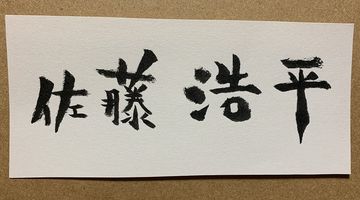 佐藤 浩平